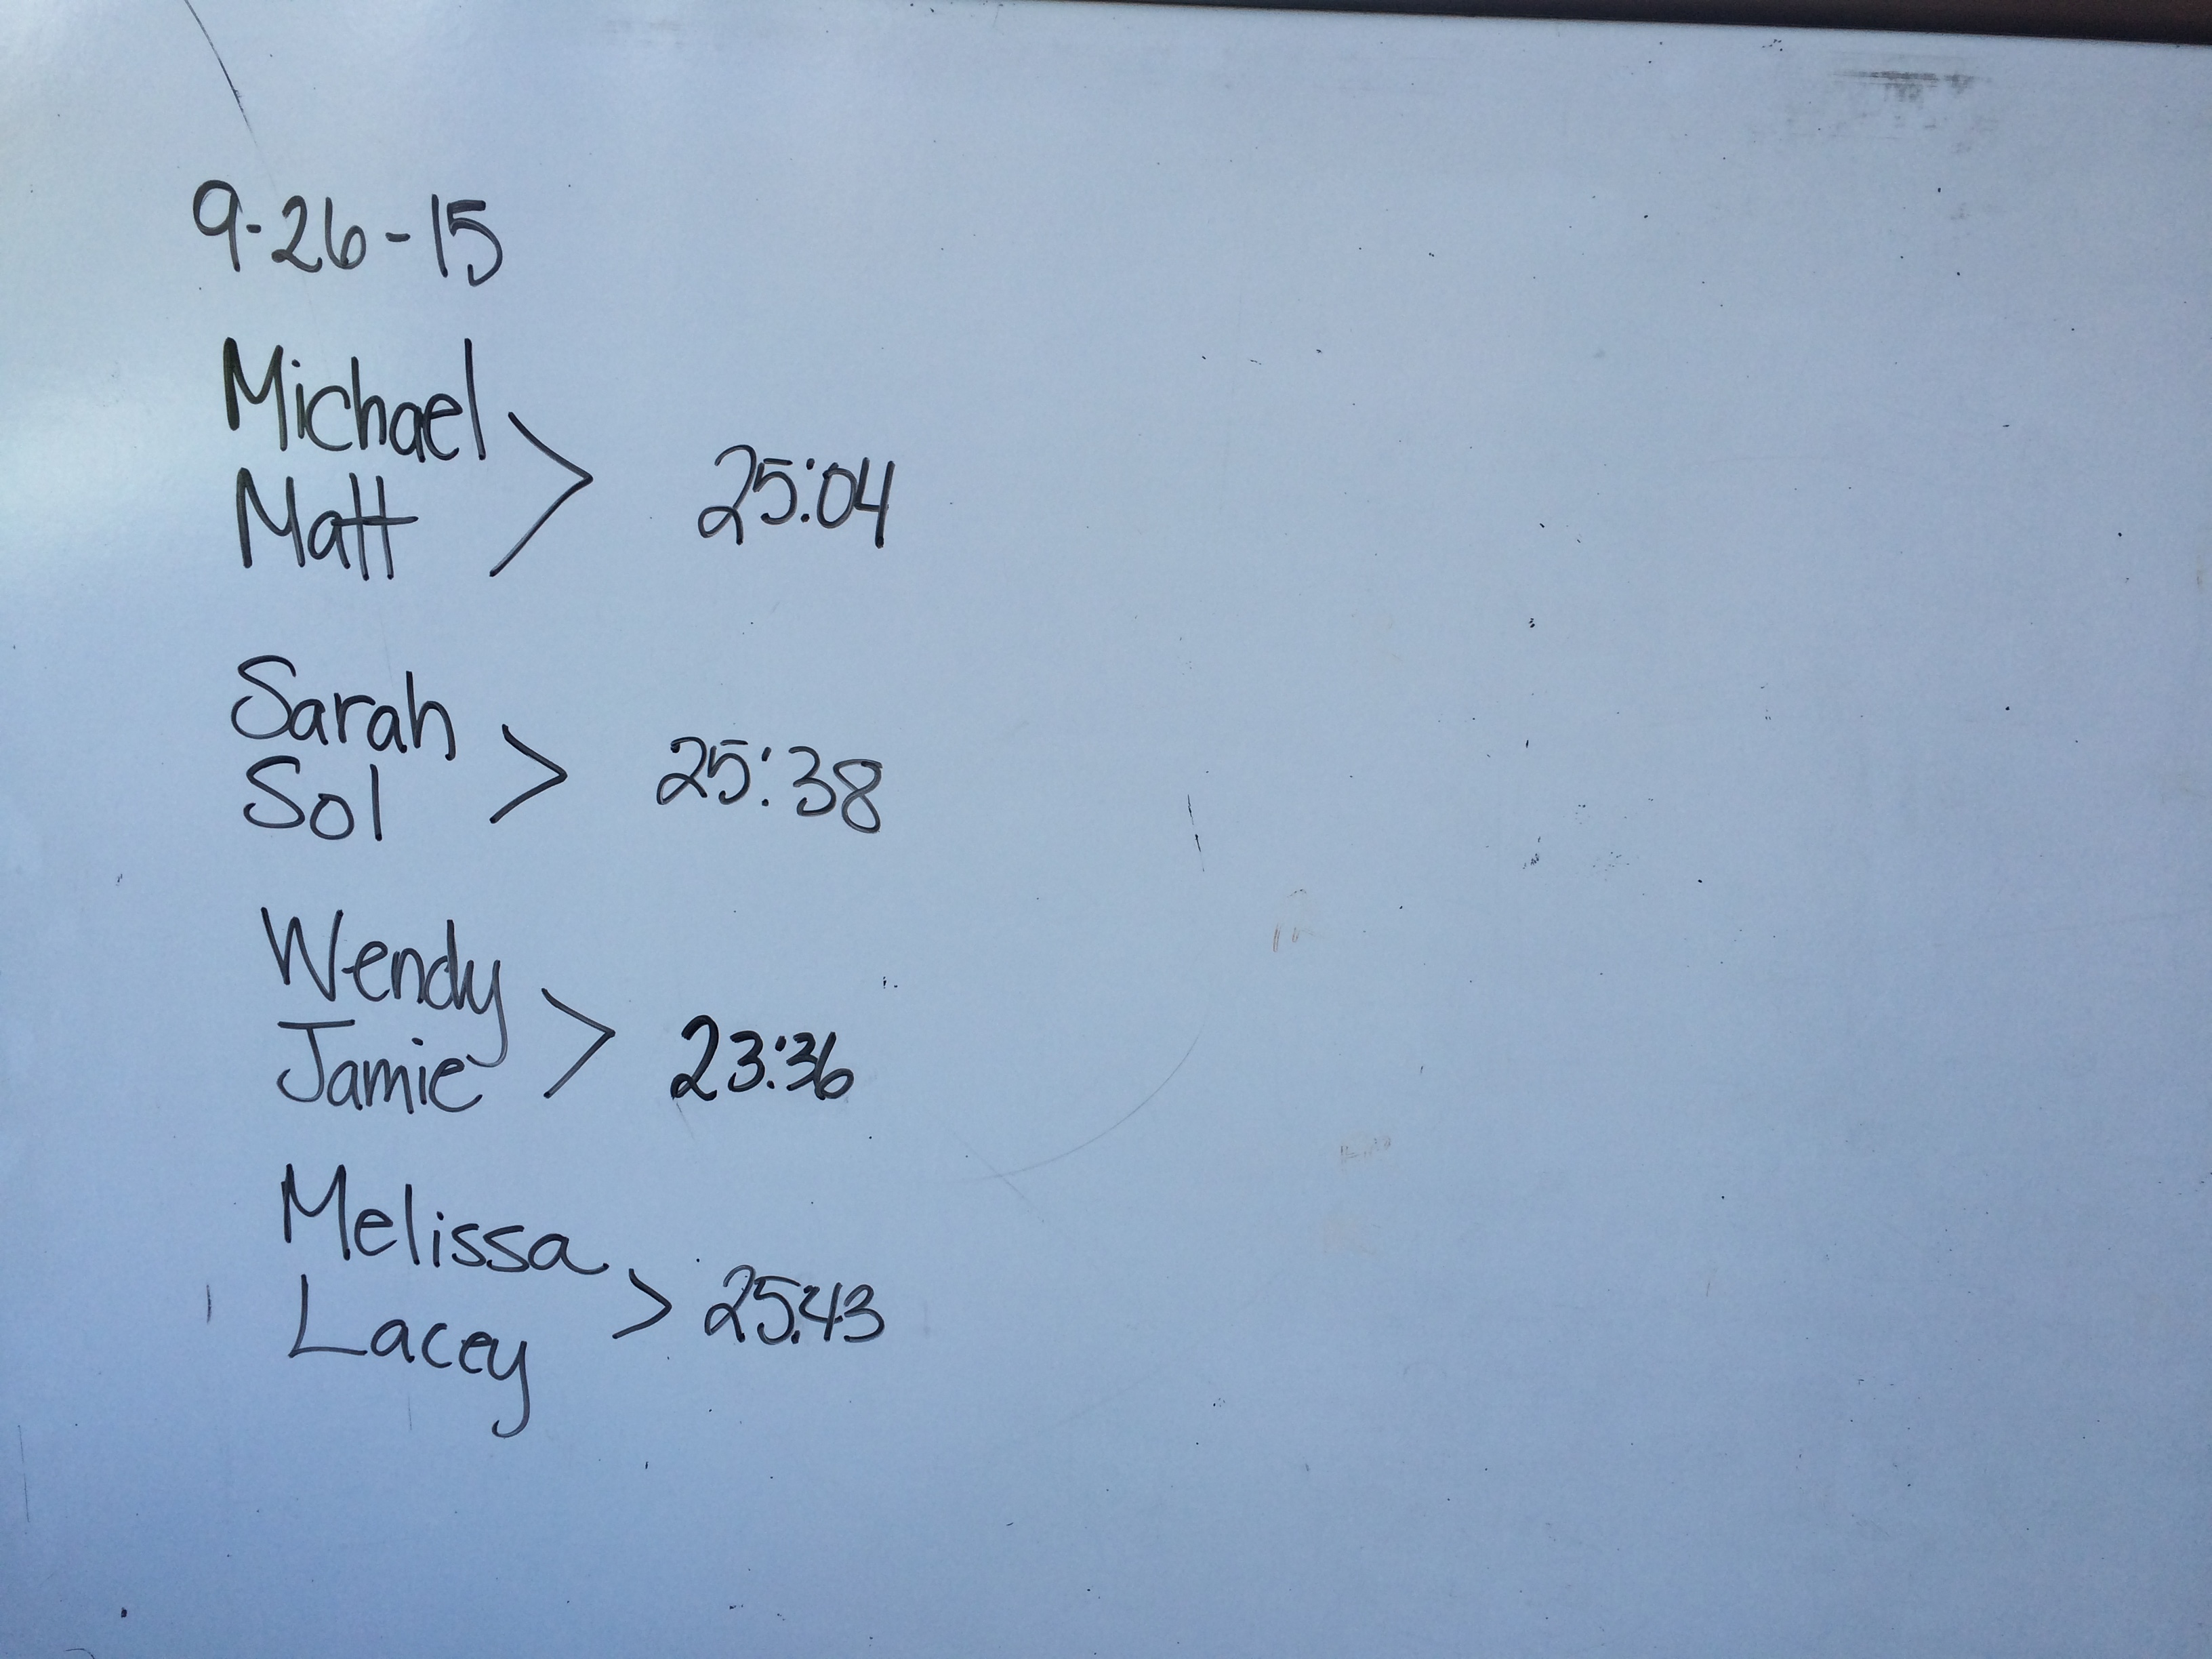 9-26-15
Michael
Matt > 25:04
Sarah
Sol > 25:38
Wendy
Jamie > 23:36
Melissa
Lacey > 25:43